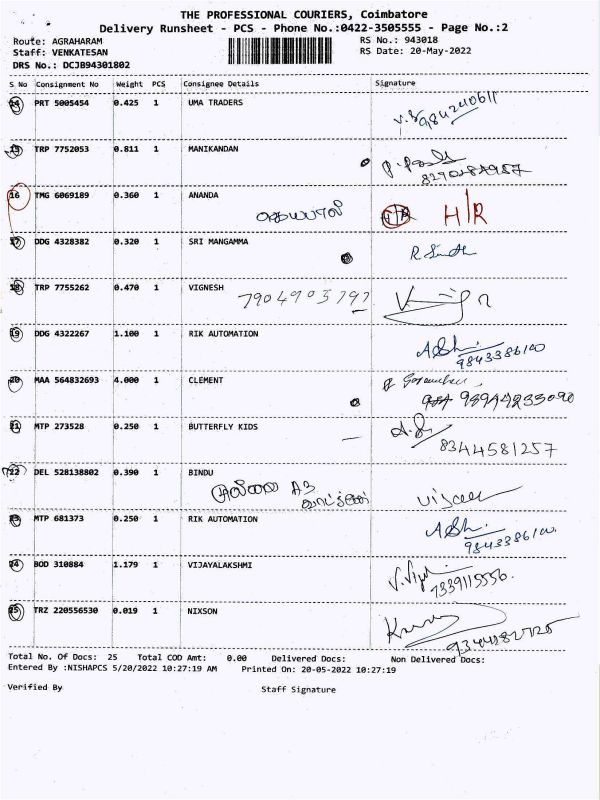 THE PROFESSIONAL COURIERS, Coimbatore
Delivery Runsheet - PCS - Phone No.:0422-3505555 - Page No.:2
Route: AGRAHARAM RS No.: 943018
Staff: VENKATESAN RS Date: 20-May-2022
DRS No.: DCJB94301802
S No Consignment No Weight PCS Consignee Details Signature
14 PRT 5005454 0.425 1 UMA TRADERS
984240611
15 TRP 7752053 0.811 1 MANIKANDAN
16 TMG 6069189 0.360 1 ANANDA
H/R H/R
17 DDG 4328382 0.320 1 SRI MANGAMMA
18 TRP 7755262 0.470 1 VIGNESH
7904905797
19 DDG 4322267 1.100 1 RIK AUTOMATION
9843386100
20 MAA 564832693 4.000 1 CLEMENT
21 MTP 273528 0.250 1 BUTTERFLY KIDS
8344581257
22 DEL 528138802 0.390 1 BINDU
23 MTP 681373 0.250 1 RIK AUTOMATION
9843386100
24 BOD 310884 1.179 1 VIJAYALAKSHMI
7339115556.
25 TRZ 220556530 0.019 1 NIXSON
Total No. Of Docs: 25 Total COD Amt: 0.00 Delivered Docs: Non Delivered Docs:
Entered By :NISHAPCS 5/20/2022 10:27:19 AM Printed On: 20-05-2022 10:27:19
Verified By Staff Signature